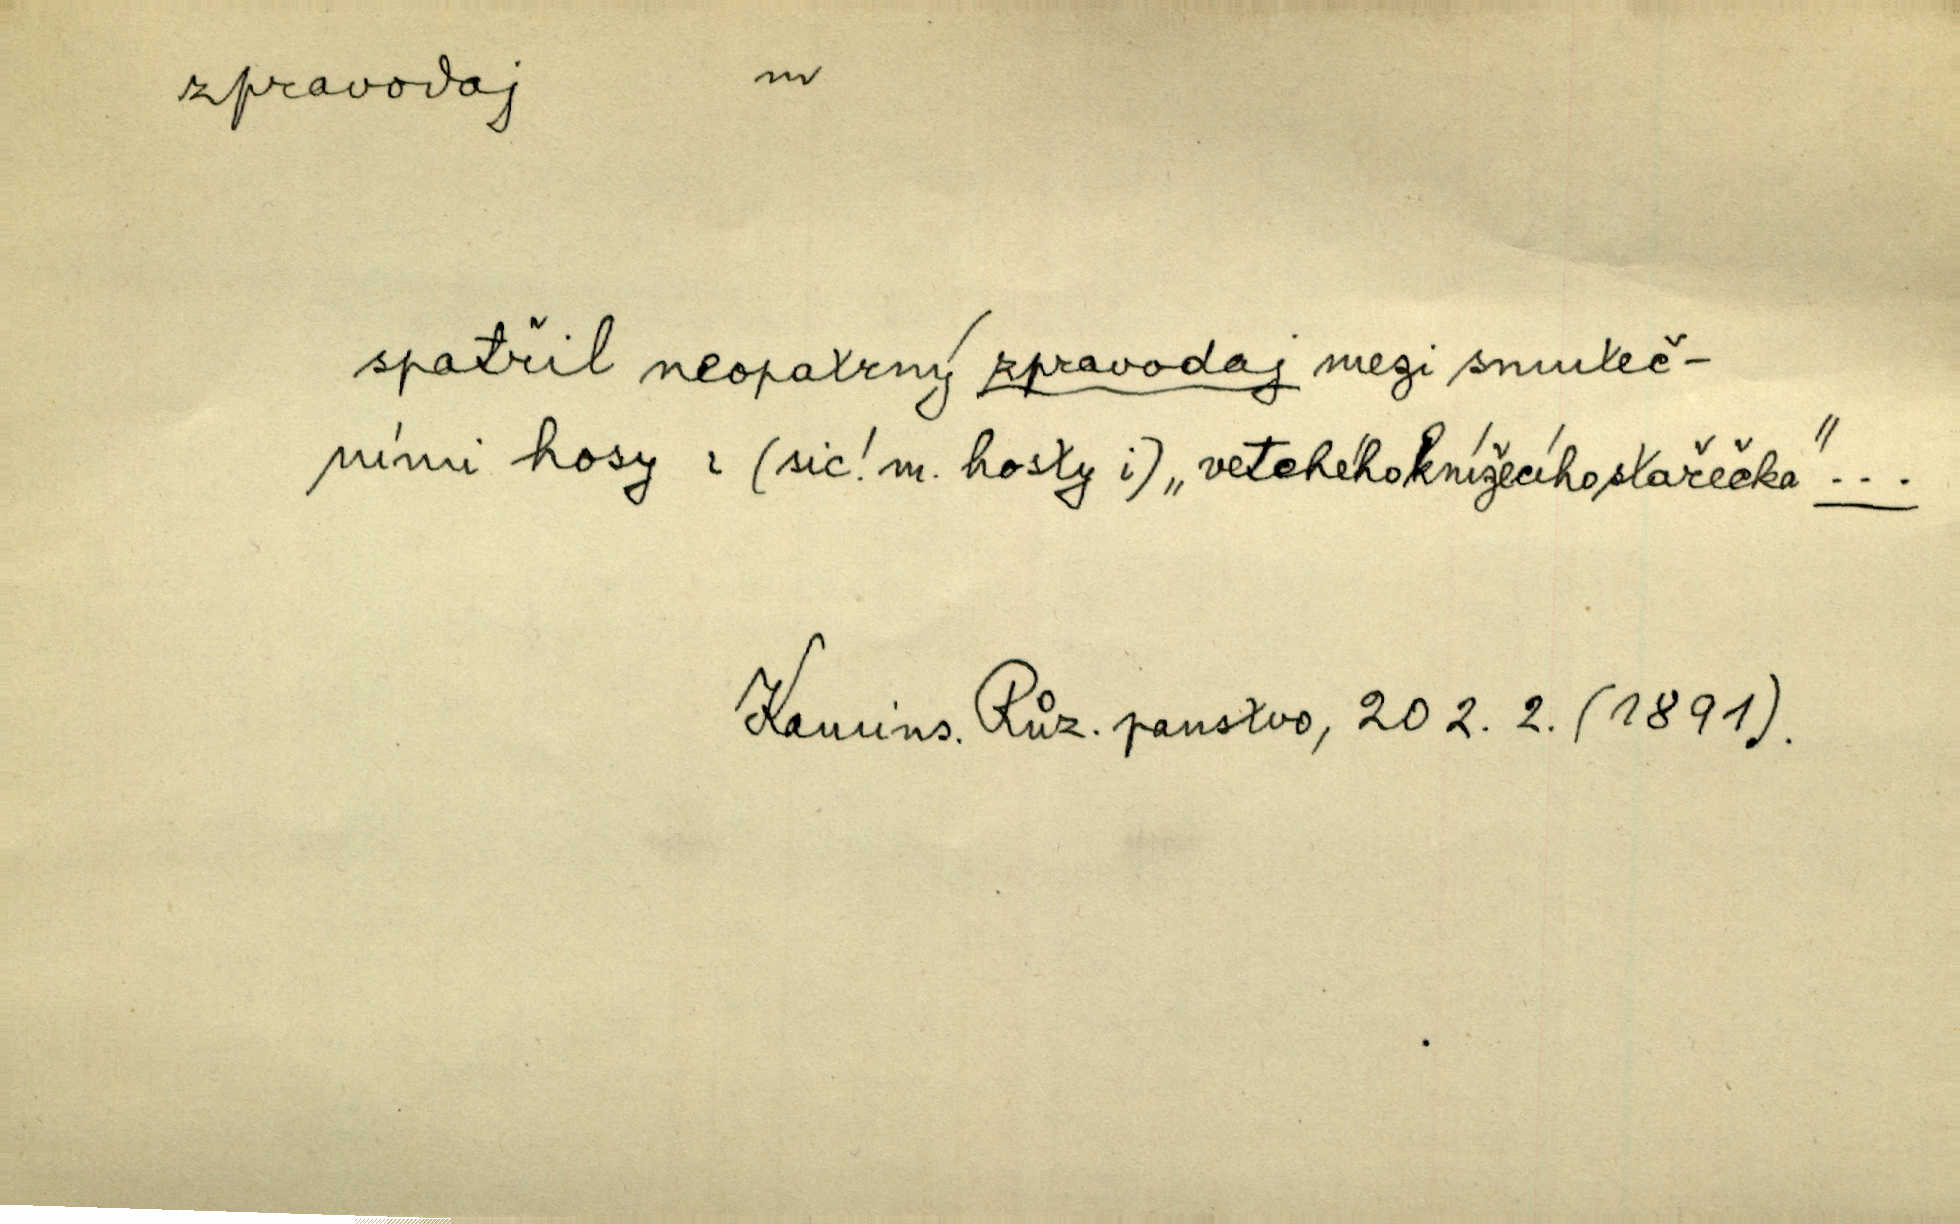 zpravodaj m
spatřil neopatrný zpravodaj mezi smuteč-
ními hosy i (sic! m. hosty i) „vetchého knížecího stařečka" ...
Kamins. Růz. panstvo, 202. 2. (1891).